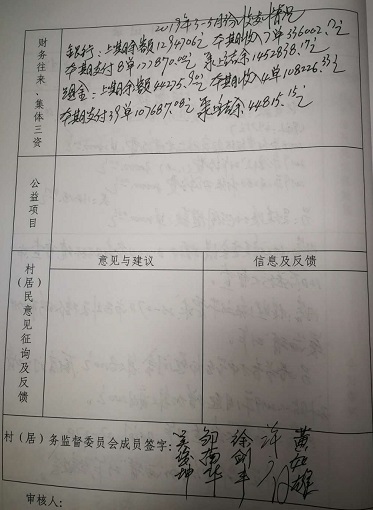 2019年3-5月份收支情况
财务往来、集体三资
银行:上期余额1294706元 本期收入7单336002.17元
本期支付8单177870.00元 累计结余1452838.17元
现金:上期余额44275.90元 本期收入4单108226.33元
本期支付39单107687.08元 累计结余44815.15元
公益项目
村(居)民意见征询及反馈
意见与建议
信息及反馈
村(居)务监督委员会成员签字:
审核人: